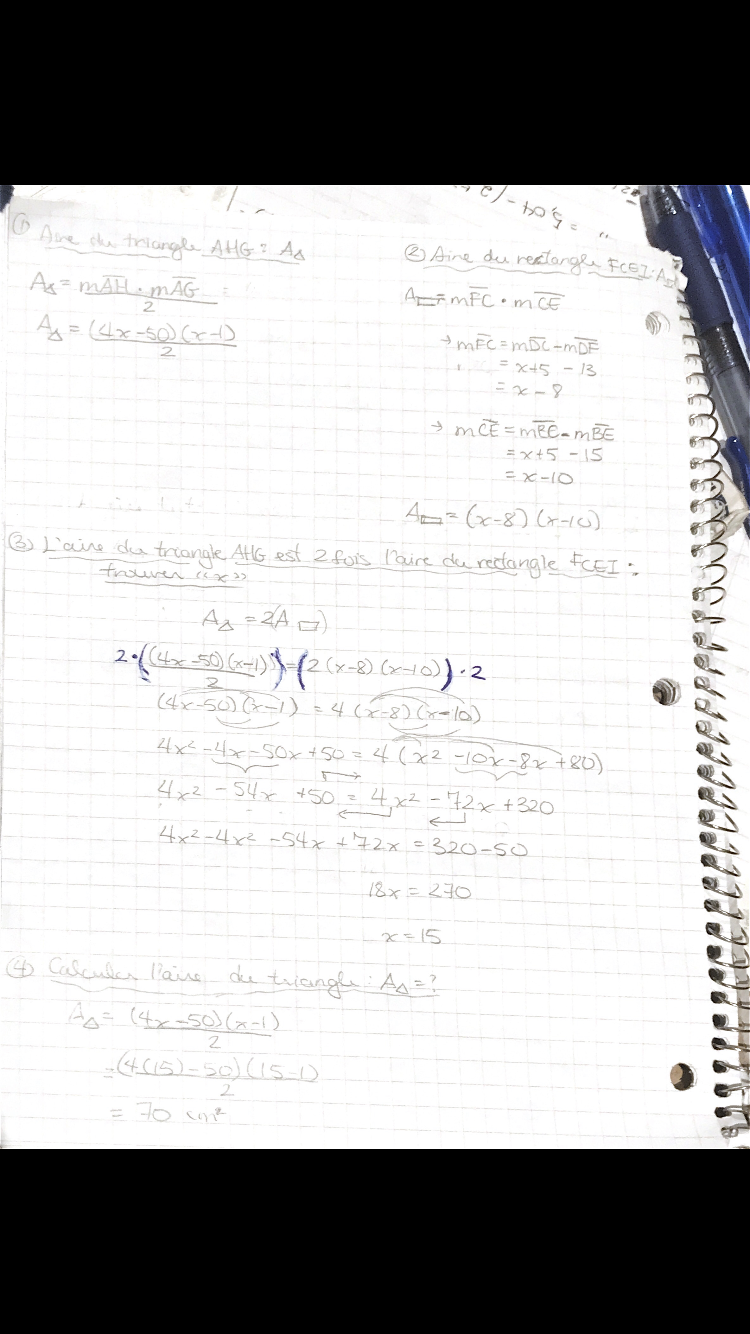 = 5,04 - (2
① Aire du triangle AHG : A△
A△ = mAH · mAG
2
A△ = (4x-50)(x-1)
2
② Aire du rectangle FCEI : A▭
A▭ = mFC · mCE
→ mFC = mDC - mDF
= x+5 - 13
= x - 8
→ mCE = mBC - mBE
= x+5 - 15
= x-10
A▭ = (x-8)(x-10)
③ L'aire du triangle AHG est 2 fois l'aire du rectangle FCEI :
trouver "x"
A△ = 2(A▭)
2·((4x-50)(x-1)) = (2(x-8)(x-10))·2
2
(4x-50)(x-1) = 4(x-8)(x-10)
4x² - 4x - 50x + 50 = 4(x² - 10x - 8x + 80)
4x² - 54x + 50 = 4x² - 72x + 320
4x² - 4x² - 54x + 72x = 320 - 50
18x = 270
x = 15
④ Calculer l'aire du triangle : A△ = ?
A△ = (4x-50)(x-1)
2
= (4(15)-50)(15-1)
2
= 70 cm²